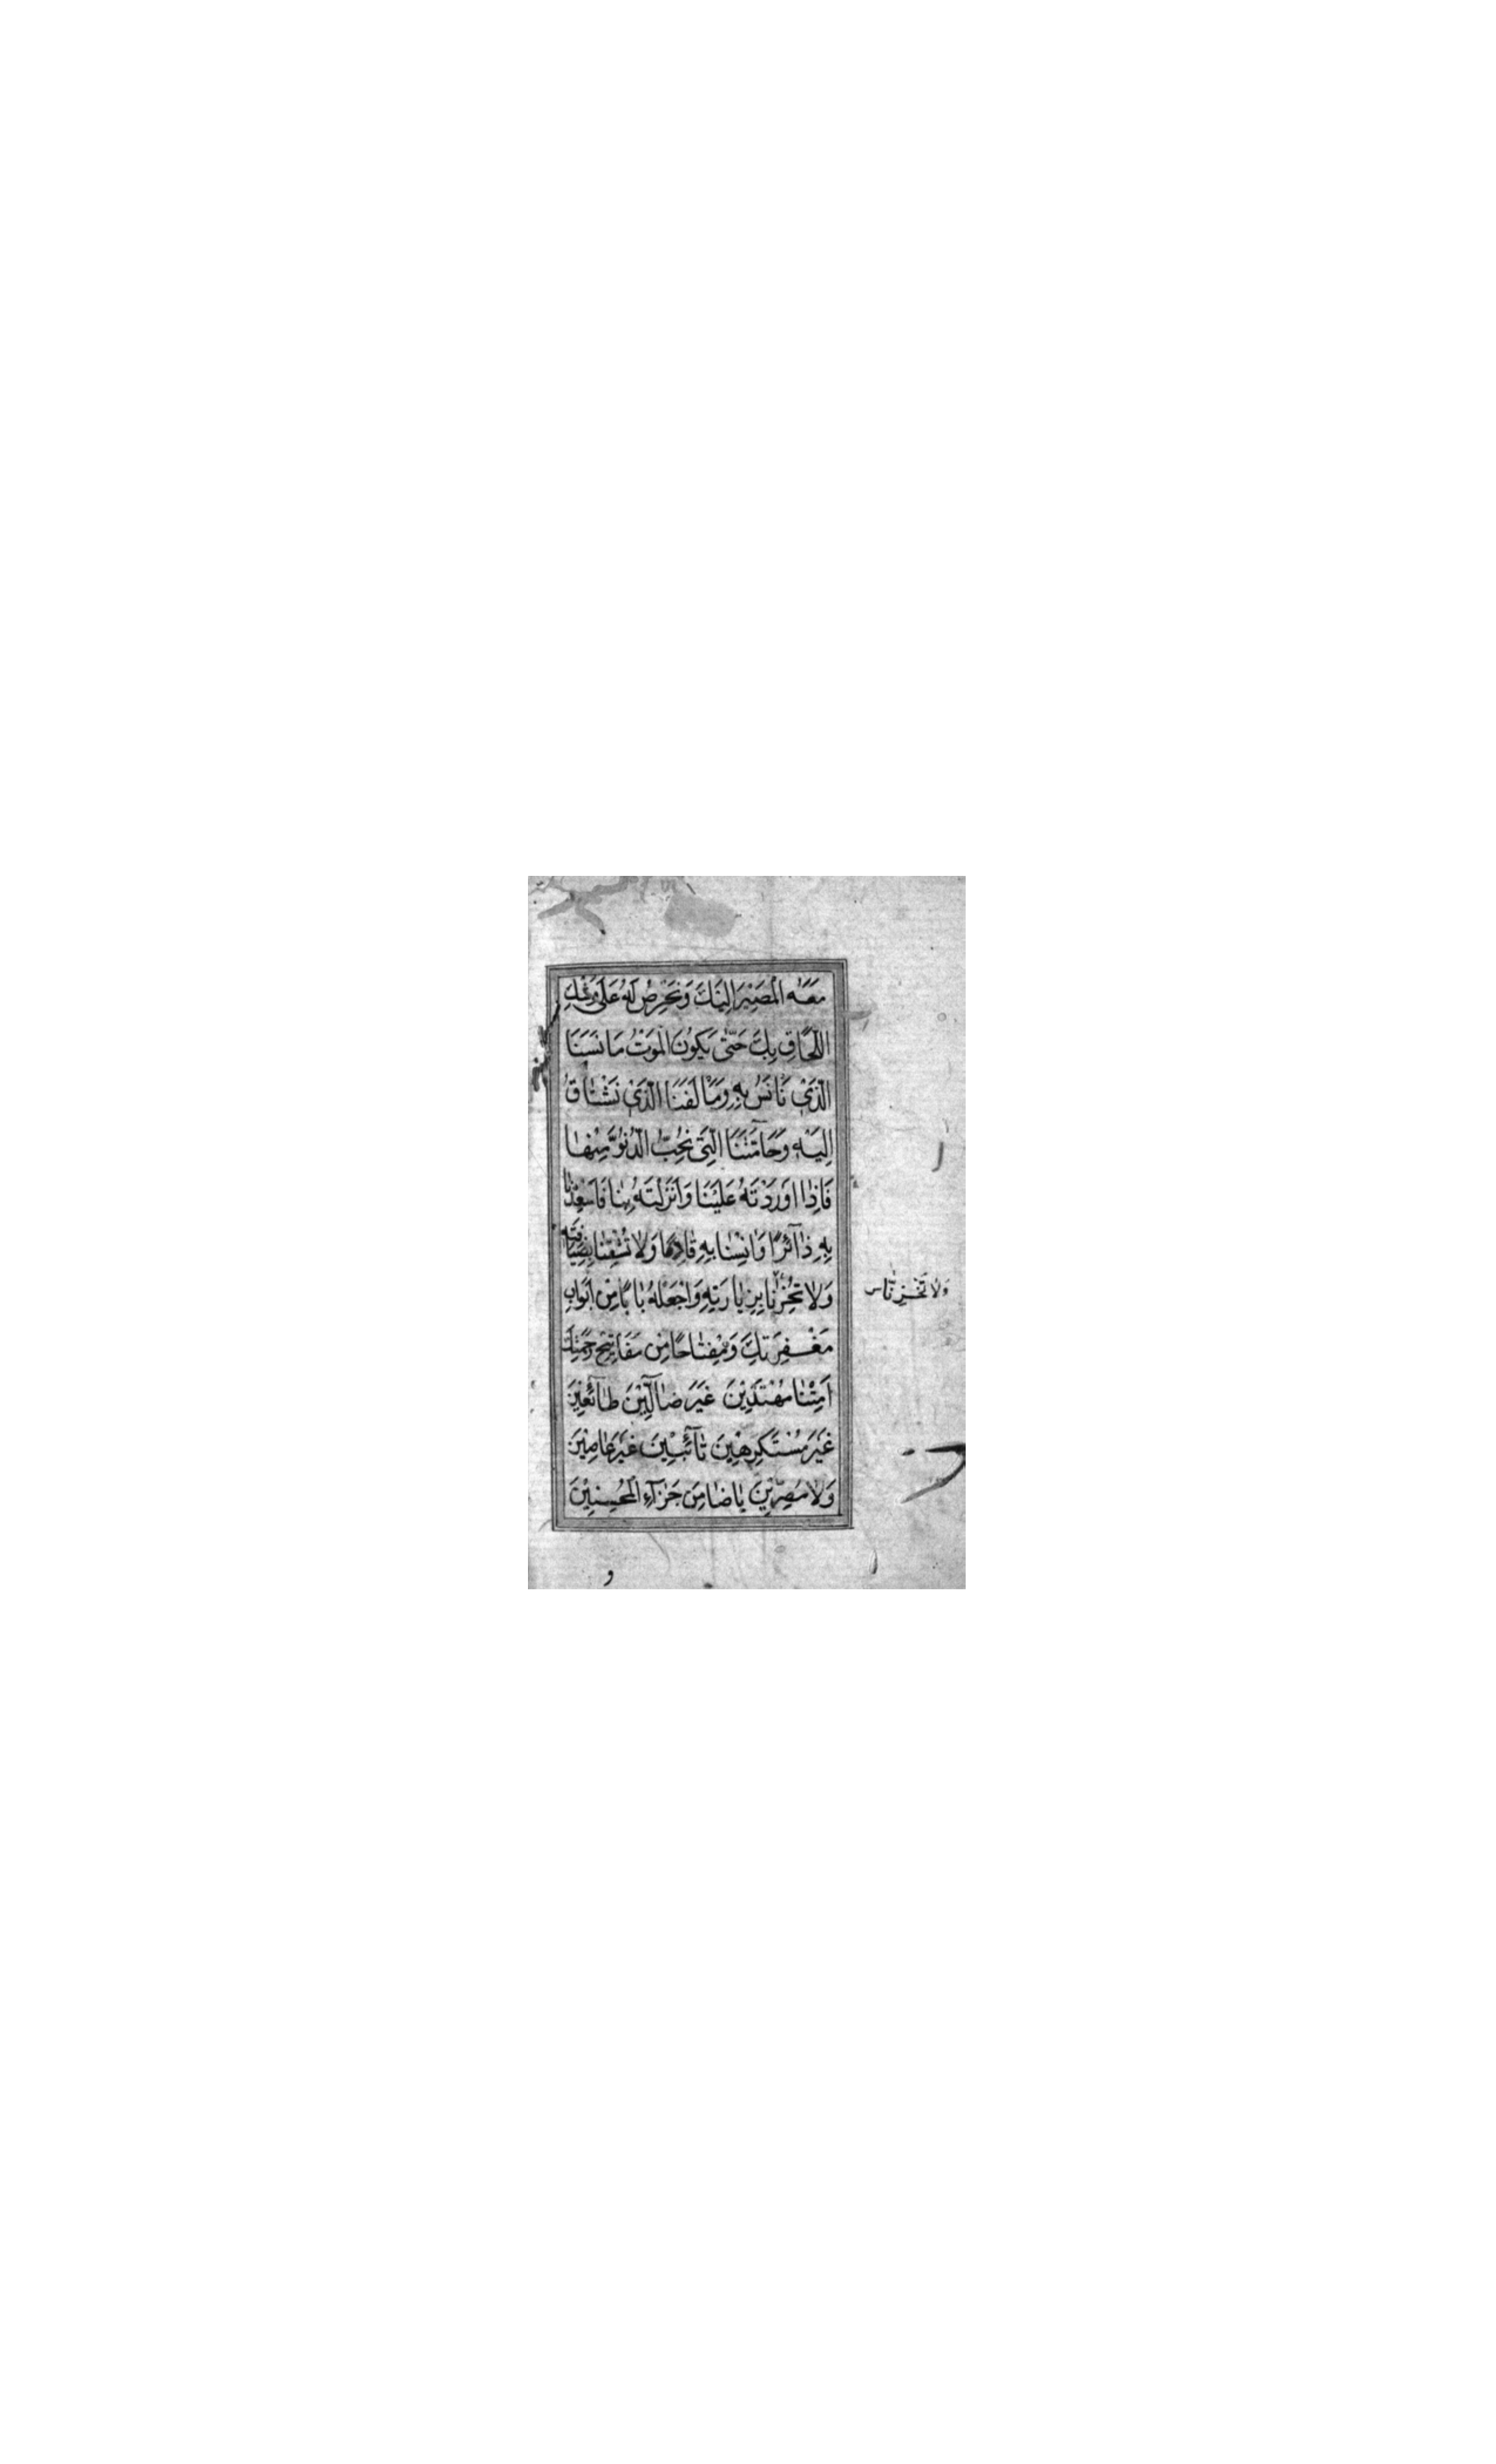 مَعَهُ الْمَصِيْرَ اِلَيْكَ وَنَحْرِصُ لَهُ عَلٰى وَشْكِ
اللِّحَاقِ بِكَ حَتّٰى يَكُونَ الْمَوْتُ مَاْنَسَنَا
الَّذِيْ نَاْنَسُ بِهِ وَمَاْلَفَنَا الَّذِيْ نَشْتٰاقُ
اِلَيْهِ وَحَامَّتَنَا الَّتِيْ نُحِبُّ الدُّنُوَّ مِنْهٰا
فَاِذٰا اَوْرَدْتَهُ عَلَيْنَا وَاَنْزَلْتَهُ بِنٰا فَاَسْعِدْنٰا
بِهِ زٰآئِرًا وَاٰنِسْنٰا بِهِ قٰادِمًا وَلٰا تُشْقِنٰا بِضِيٰافَتِهِ
وَلٰا تُخْزِنٰا بِزِيٰارَتِهِ وَاجْعَلْهُ بٰابًا مِنْ اَبْوٰابِ
وَلٰا تَخْزِنٰا س
مَغْفِرَتِكَ وَمِفْتٰاحًا مِنْ مَفَاتِيْحِ رَحْمَتِكَ
اَمِتْنٰا مُهْتَدِيْنَ غَيْرَ ضٰآلِّيْنَ طٰآئِعِيْنَ
غَيْرَ مُسْتَكْرِهِيْنَ تٰآئِبِيْنَ غَيْرَ عٰاصِيْنَ
وَلٰا مُصِرِّيْنَ يٰا ضٰامِنَ جَزٰآءِ الْمُحْسِنِيْنَ
و